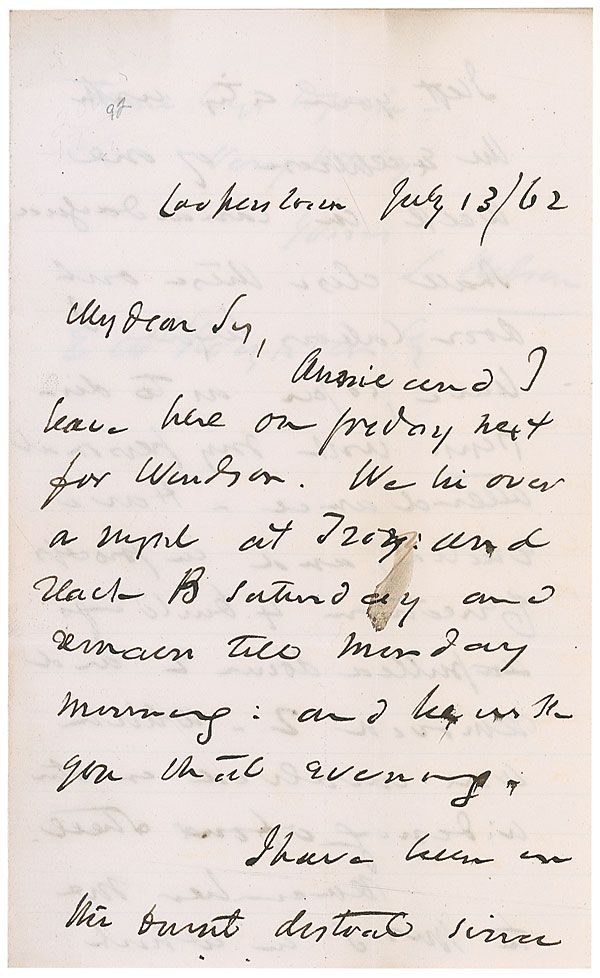 Cooperstown July 13/62
My dear Sir,
Annie and I
leave here on friday next
for Windsor. We lie over
a night at Troy: and
reach B saturday and
remain till Monday
morning: and be with
you that evening.
I have been in
the burnt district since